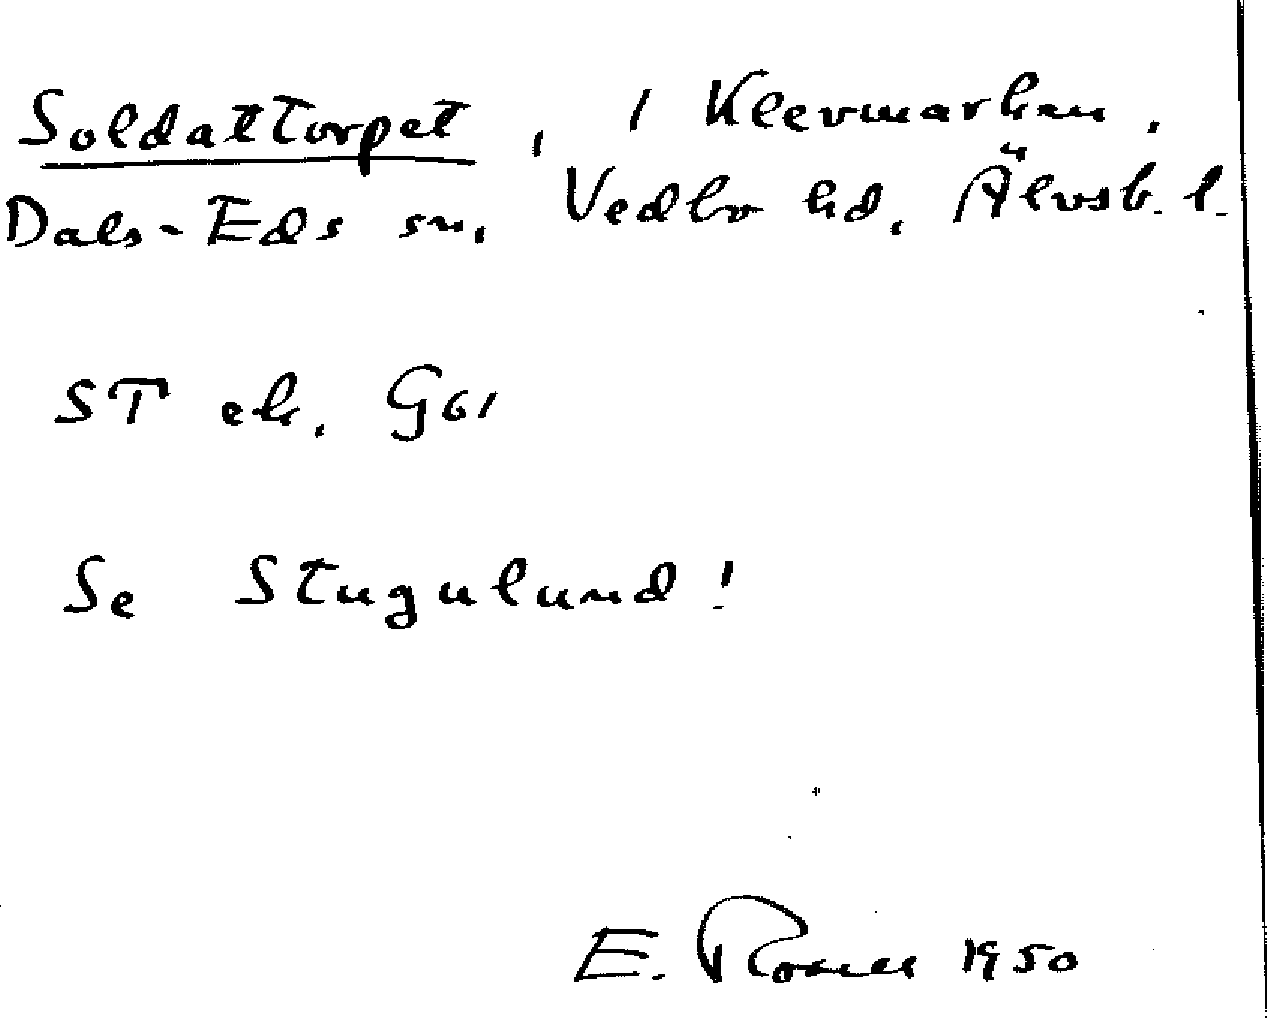 Soldattorpet, 1 Klevmarken,
Dals-Eds sn, Vedbo hd, Älvsb. l.
ST ek. G61
Se Stugulund!
E. 1950